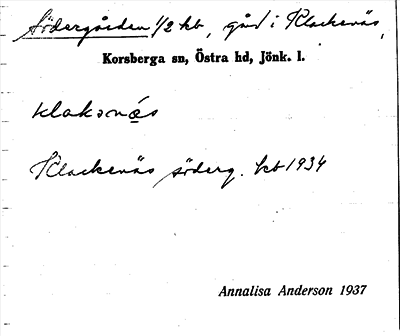 Södergården 1/2 kb, gård i Klackenäs,
Korsberga sn, Östra hd, Jönk. l.
klakənǽs
Klackenäs söderg. kb 1934
Annalisa Anderson 1937